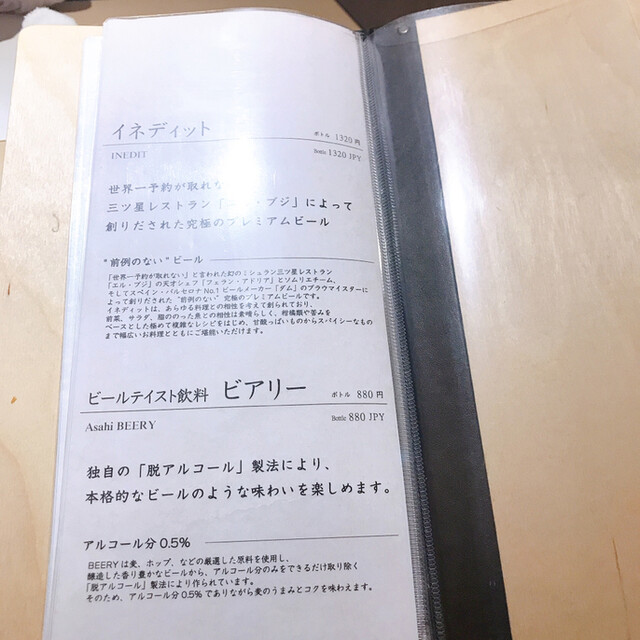 イネディット
ボトル 1320 円
INEDIT
Bottle 1320 JPY
世界一予約が取れな
三ツ星レストラン「エル・ブジ」によって
創りだされた究極のプレミアムビール
“前例のない”ビール
「世界一予約が取れない」と言われた幻のミシュラン三ツ星レストラン
「エル・ブジ」の天才シェフ「フェラン・アドリア」とソムリエチーム、
そしてスペイン・バルセロナ No.1 ビールメーカー「ダム」のブラウマイスターに
よって創りだされた “前例のない” 究極のプレミアムビールです。
イネディットは、あらゆる料理との相性を考えて創られており、
前菜、サラダ、脂ののった魚との相性は素晴らしく、柑橘類や苦みを
ベースとした極めて複雑なレシピをはじめ、甘酸っぱいものからスパイシーなもの
まで幅広いお料理とともにご堪能いただけます。
ビールテイスト飲料 ビアリー
ボトル 880 円
Asahi BEERY
Bottle 880 JPY
独自の「脱アルコール」製法により、
本格的なビールのような味わいを楽しめます。
アルコール分 0.5%
BEERY は麦、ホップ、などの厳選した原料を使用し、
醸造した香り豊かなビールから、アルコール分のみをできるだけ取り除く
「脱アルコール」製法により作られています。
そのため、アルコール分 0.5% でありながら麦のうまみとコクを味わえます。